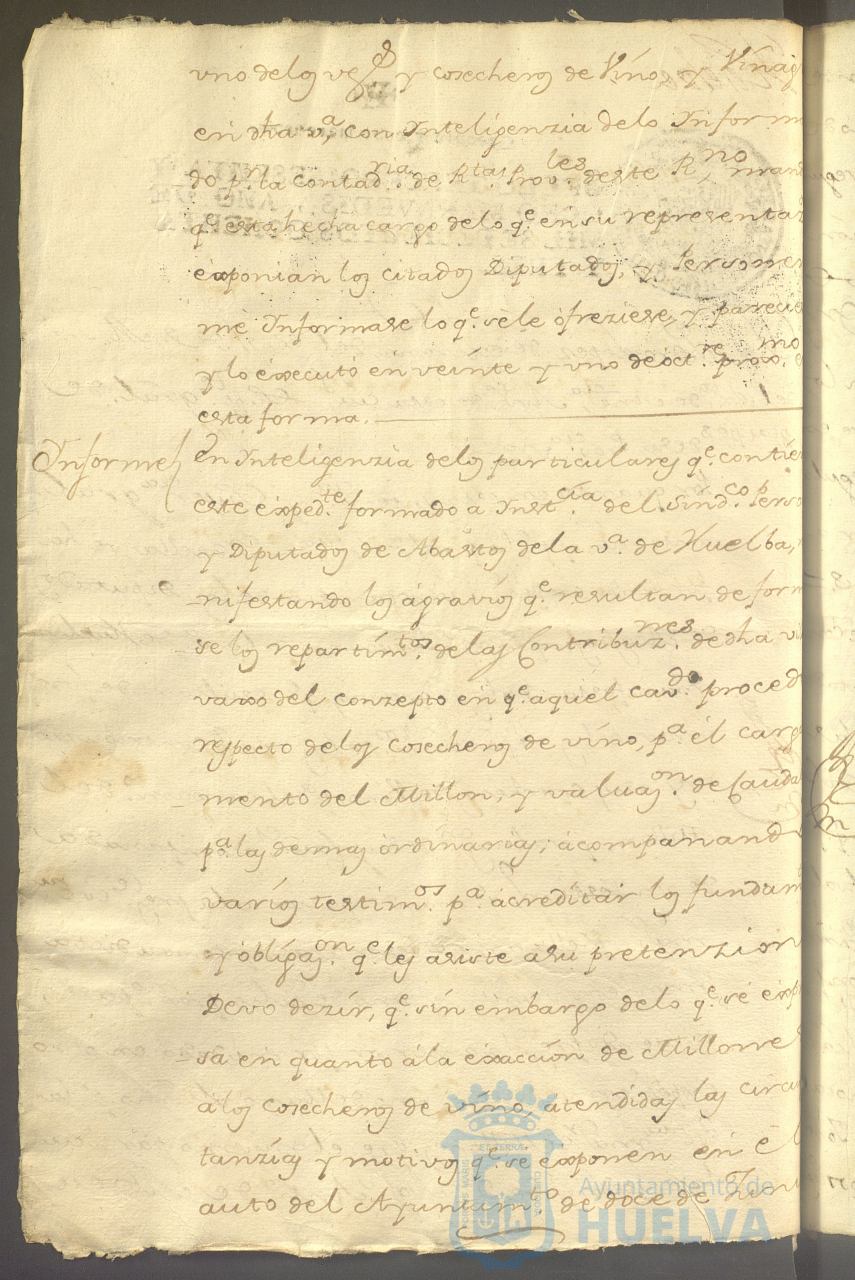 uno delos vez.s y cosecheros de Vino, y Vinag
en dha v.a, con Inteligenzia delo Inform
do p.r la contad.ria de R.tas Prov.les deste R.no, man
q.e esta hecha cargo delo q.e en su representaz
exponian los citados Diputados, y Persone
me Informase lo q.e sele ofreziese, y parecie
y lo executó en veinte y uno de oct.re prox.mo
esta forma.
Informe
En Inteligenzia delos particulares q.e contie
este exped.te formado à Inst.cia del Sind.co Perso
y Diputados de Abastos dela v.a de Huelba,
nifestando los agravios q.e resultan de form
se los repartim.tos delas Contribuz.nes de dha vi
vaxo del conzepto en q.e aquel cav.do proced
respecto delos cosecheros de vino, p.a el carg
mento del Millon, y valuaz.on de Cauda
p.a las demas ordinarias; acompañand
varios testim.os p.a acreditar los fundam
y obligaz.on q.e les asiste asu pretenzion
Devo dezir, q.e sin embargo delo q.e se exp
sa en quanto ála exacción de Millone
alos cosecheros de vino, atendidas las circu
tanzias y motivos q.e se exponen en el
auto del Ayuntam.to de doce de Juni
Ayuntamiento de
HUELVA